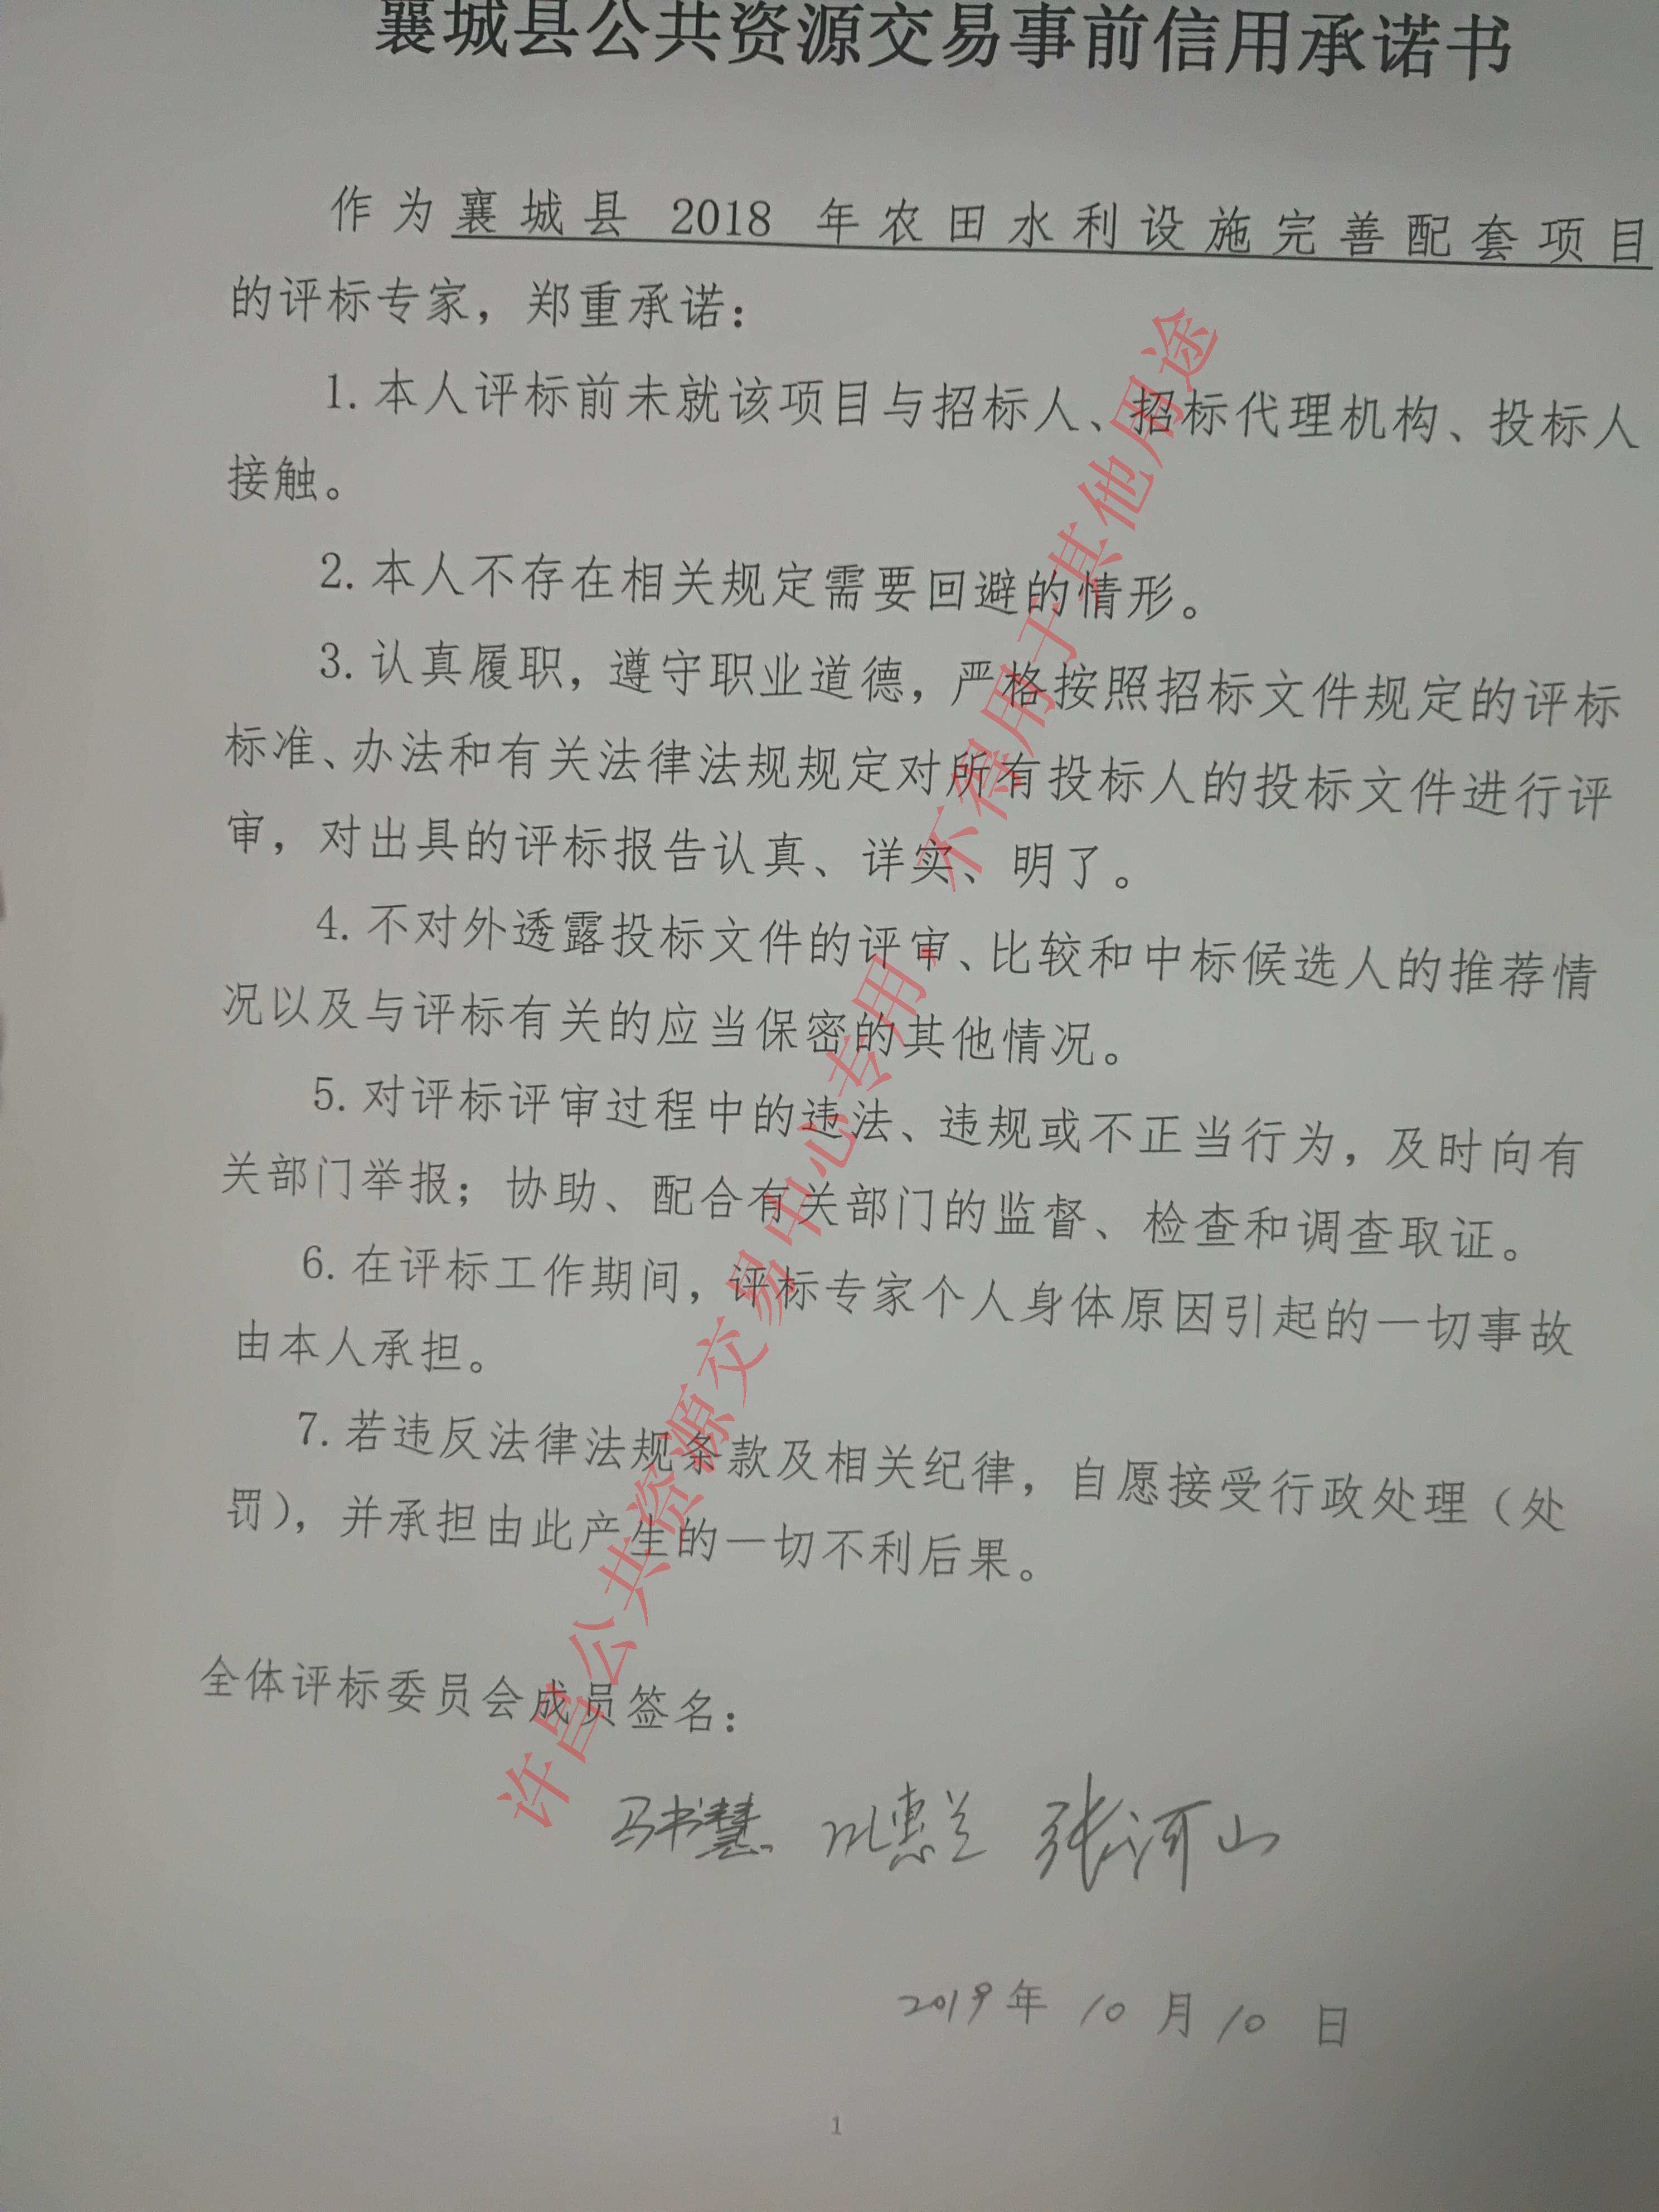 襄城县公共资源交易事前信用承诺书
作为襄城县 2018 年农田水利设施完善配套项目
的评标专家，郑重承诺：
1. 本人评标前未就该项目与招标人、招标代理机构、投标人
接触。
2. 本人不存在相关规定需要回避的情形。
3. 认真履职，遵守职业道德，严格按照招标文件规定的评标
标准、办法和有关法律法规规定对所有投标人的投标文件进行评
审，对出具的评标报告认真、详实、明了。
4. 不对外透露投标文件的评审、比较和中标候选人的推荐情
况以及与评标有关的应当保密的其他情况。
5. 对评标评审过程中的违法、违规或不正当行为，及时向有
关部门举报；协助、配合有关部门的监督、检查和调查取证。
6. 在评标工作期间，评标专家个人身体原因引起的一切事故
由本人承担。
7. 若违反法律法规条款及相关纪律，自愿接受行政处理（处
罚），并承担由此产生的一切不利后果。
全体评标委员会成员签名：
马书慧 惠兰 张河山
2019年 10 月 10 日
1
许昌公共资源交易中心专用，不得用于其他用途